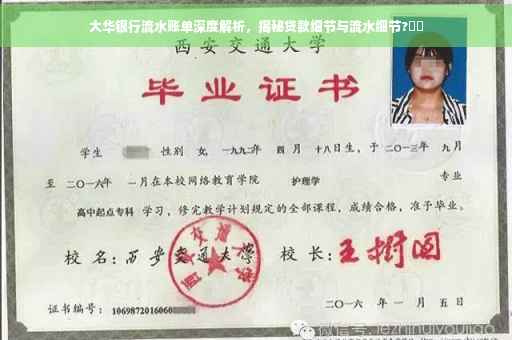 大华银行流水账单深度解析，揭秘贷款细节与流水细节?
西安交通大学
毕业证书
学生 性别 女, 一九九二年 四月 十八日生, 于二〇一三年 九月
至 二〇一六年 一月在本校网络教育学院 护理学 专业
高中起点专科 学习, 修完教学计划规定的全部课程, 成绩合格, 准予毕业。
校 名: 西安交通大学 校 长: 王树国
证书编号: 1069872016060
二〇一六 年 一 月 五 日
微信号: jezhihuiyoujiao